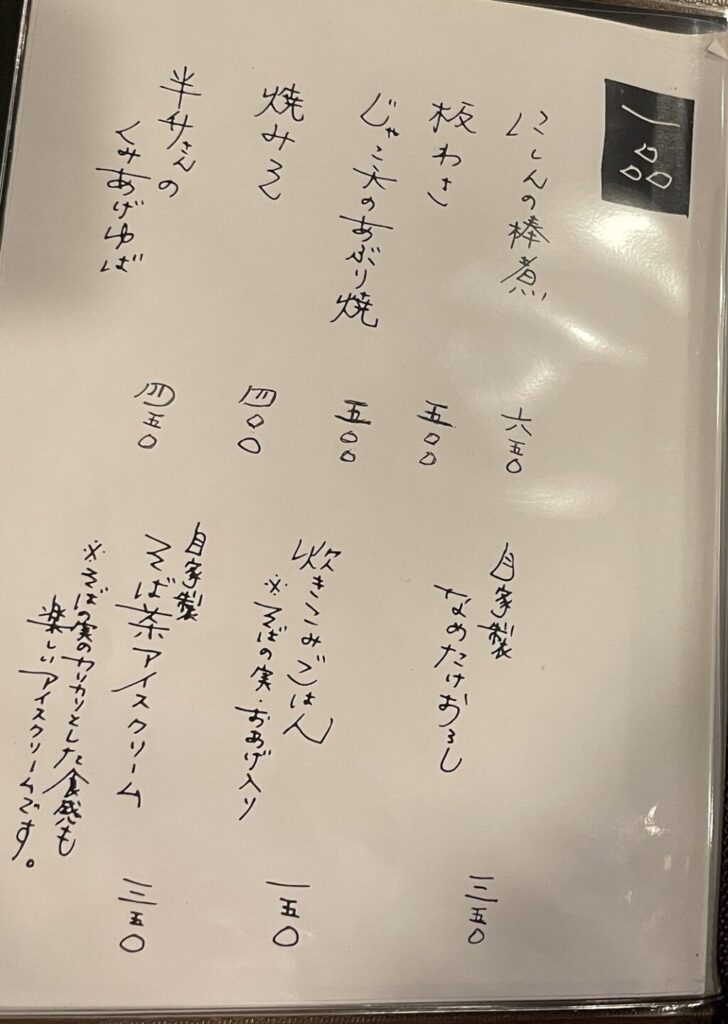 一品
にしんの棒煮
六五〇
板わさ
五〇〇
じゃこ天のあぶり焼
五〇〇
焼みそ
四〇〇
半升さんの
くみあげゆば
四五〇
自家製
なめたけおろし
三五〇
炊きこみごはん
※そばの実・おあげ入り
一五〇
自家製
そば茶アイスクリーム
※そばの実のカリカリとした食感も
楽しいアイスクリームです。
三五〇